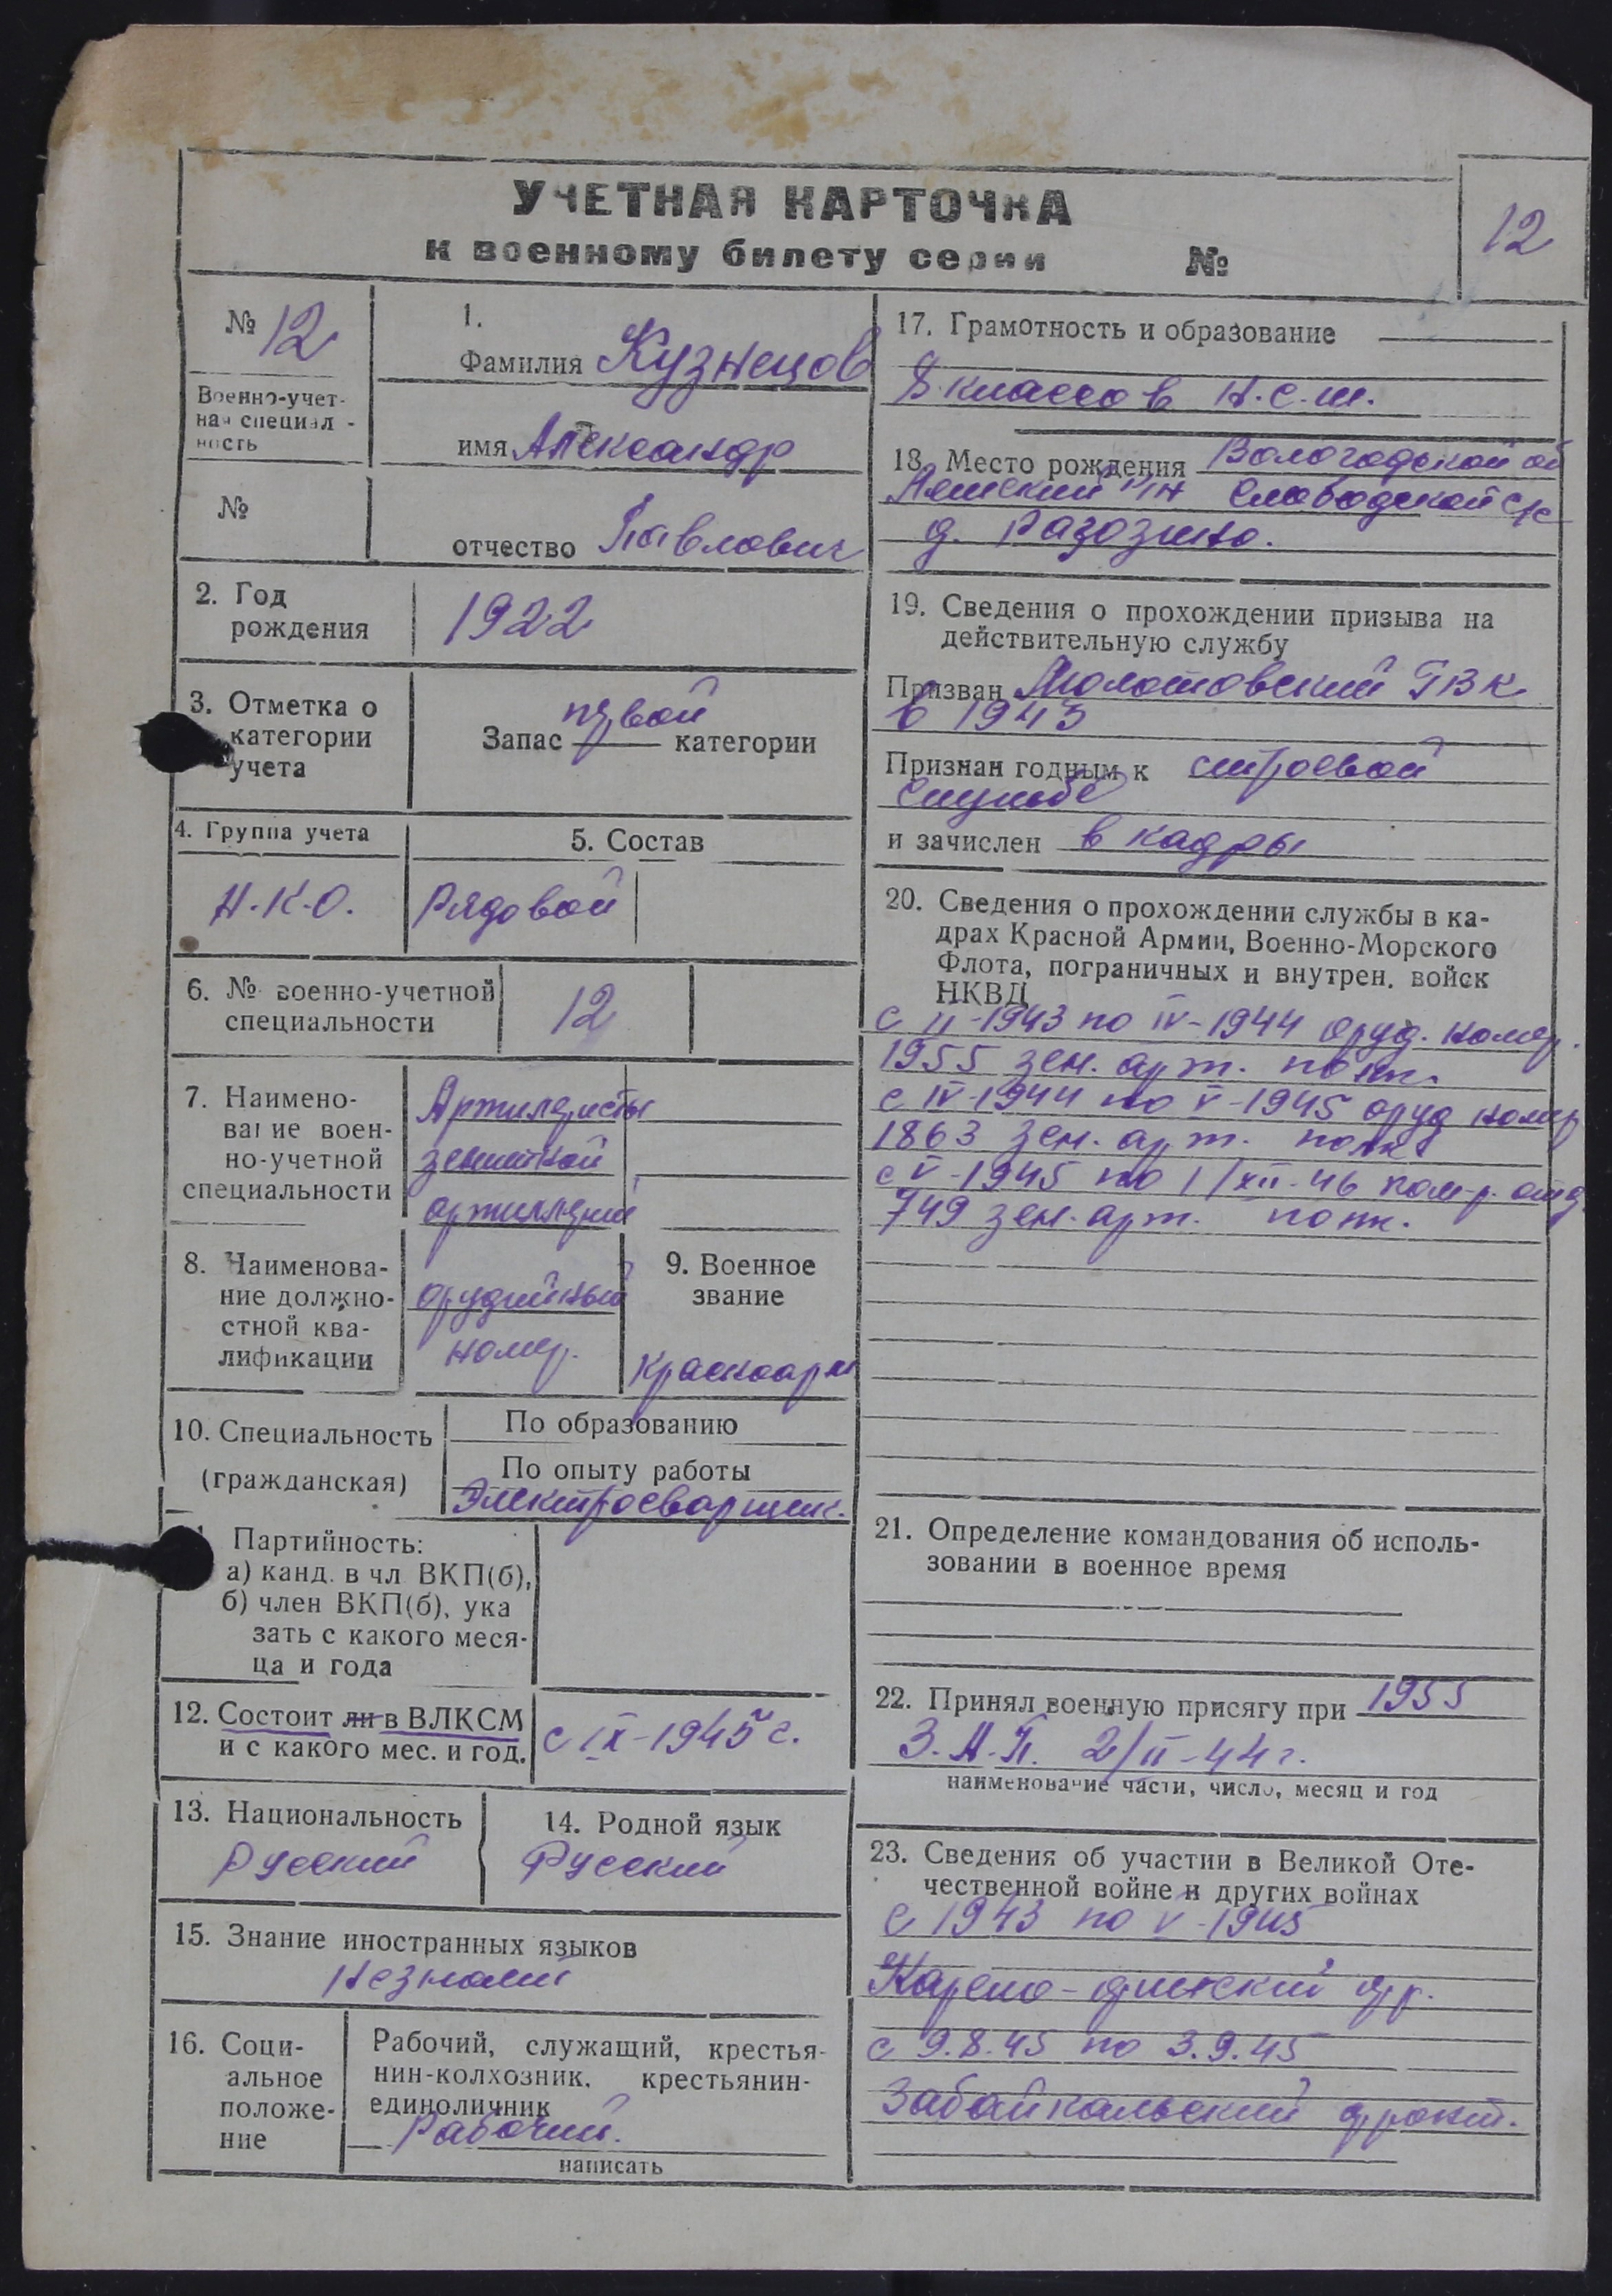 УЧЕТНАЯ КАРТОЧКА
к военному билету серии №
12
№ 12
Военно-учет-
ная специал-
ность
№
1.
Фамилия Кузнецов
имя Александр
отчество Павлович
2. Год
рождения
1922
3. Отметка о
категории
учета
первой
Запас категории
4. Группа учета
Н.К.О.
5. Состав
Рядовой
6. № военно-учетной
специальности
12
7. Наимено-
вание воен-
но-учетной
специальности
Артилеристы
зенитной
артиллерии
8. Наименова-
ние должно-
стной ква-
лификации
орудийный
номер.
9. Военное
звание
Красноарм
10. Специальность
(гражданская)
По образованию
По опыту работы
Электросварщик.
Партийность:
а) канд. в чл ВКП(б),
б) член ВКП(б), ука
зать с какого меся-
ца и года
12. Состоит ли в ВЛКСМ
и с какого мес. и год.
с IX-1945 г.
13. Национальность
Русский
14. Родной язык
Русский
15. Знание иностранных языков
Незнает
16. Соци-
альное
положе-
ние
Рабочий, служащий, крестья-
нин-колхозник, крестьянин-
единоличник
Рабочий.
написать
17. Грамотность и образование
8 классов Н.С.Ш.
18. Место рождения Вологодской об
р/н Слободской с/с
д.
19. Сведения о прохождении призыва на
действительную службу
Призван Молотовский ГВК
в 1943
Признан годным к строевой
службе
и зачислен в кадры
20. Сведения о прохождении службы в ка-
драх Красной Армии, Военно-Морского
Флота, пограничных и внутрен. войск
НКВД
с II-1943 по IV-1944 оруд. номер.
1955 зен. арт. полк.
с IV-1944 по V-1945 оруд номер
1863 зен. арт. полк.
с V-1945 по 1/XII-46 ком-р. отд.
749 зен. арт. полк.
21. Определение командования об исполь-
зовании в военное время
22. Принял военную присягу при 1955
З.А.П. 2/II-44 г.
наименование части, число, месяц и год
23. Сведения об участии в Великой Оте-
чественной войне и других войнах
с 1943 по V-1945
Карело-финский фр.
с 9.8.45 по 3.9.45
Забайкальский фронт.